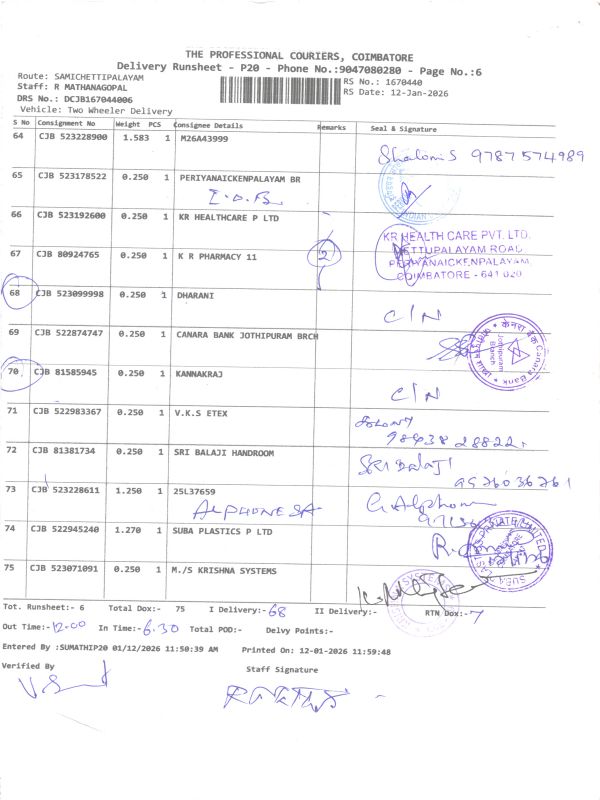 THE PROFESSIONAL COURIERS, COIMBATORE
Delivery Runsheet - P20 - Phone No.:9047080280 - Page No.:6
Route: SAMICHETTIPALAYAM
RS No.: 1670440
Staff: R MATHANAGOPAL
RS Date: 12-Jan-2026
DRS No.: DCJB167044006
Vehicle: Two Wheeler Delivery
S No Consignment No Weight PCS Consignee Details Remarks Seal & Signature
64 CJB 523228900 1.583 1 M26A43999
Shalomi S 9787574989
65 CJB 523178522 0.250 1 PERIYANAICKENPALAYAM BR
66 CJB 523192600 0.250 1 KR HEALTHCARE P LTD
KR HEALTH CARE PVT. LTD.
METTUPALAYAM ROAD,
PERIYANAICKENPALAYAM,
COIMBATORE - 641 020
67 CJB 80924765 0.250 1 K R PHARMACY 11 2
68 CJB 523099998 0.250 1 DHARANI
C/N
69 CJB 522874747 0.250 1 CANARA BANK JOTHIPURAM BRCH
केनरा बैंक Canara Bank
Jothipuram
Branch
70 CJB 81585945 0.250 1 KANNAKRAJ
C/N
71 CJB 522983367 0.250 1 V.K.S ETEX
98438 28822
72 CJB 81381734 0.250 1 SRI BALAJI HANDROOM
SRI BALAJI
73 CJB 523228611 1.250 1 25L37659
ALPHONE SA
G. Alphon
74 CJB 522945240 1.270 1 SUBA PLASTICS P LTD
75 CJB 523071091 0.250 1 M./S KRISHNA SYSTEMS
Tot. Runsheet:- 6 Total Dox:- 75 I Delivery:- 68 II Delivery:- RTN Dox:- 7
Out Time:- 12.00 In Time:- 6.30 Total POD:- Delvy Points:-
Entered By :SUMATHIP20 01/12/2026 11:50:39 AM Printed On: 12-01-2026 11:59:48
Verified By Staff Signature